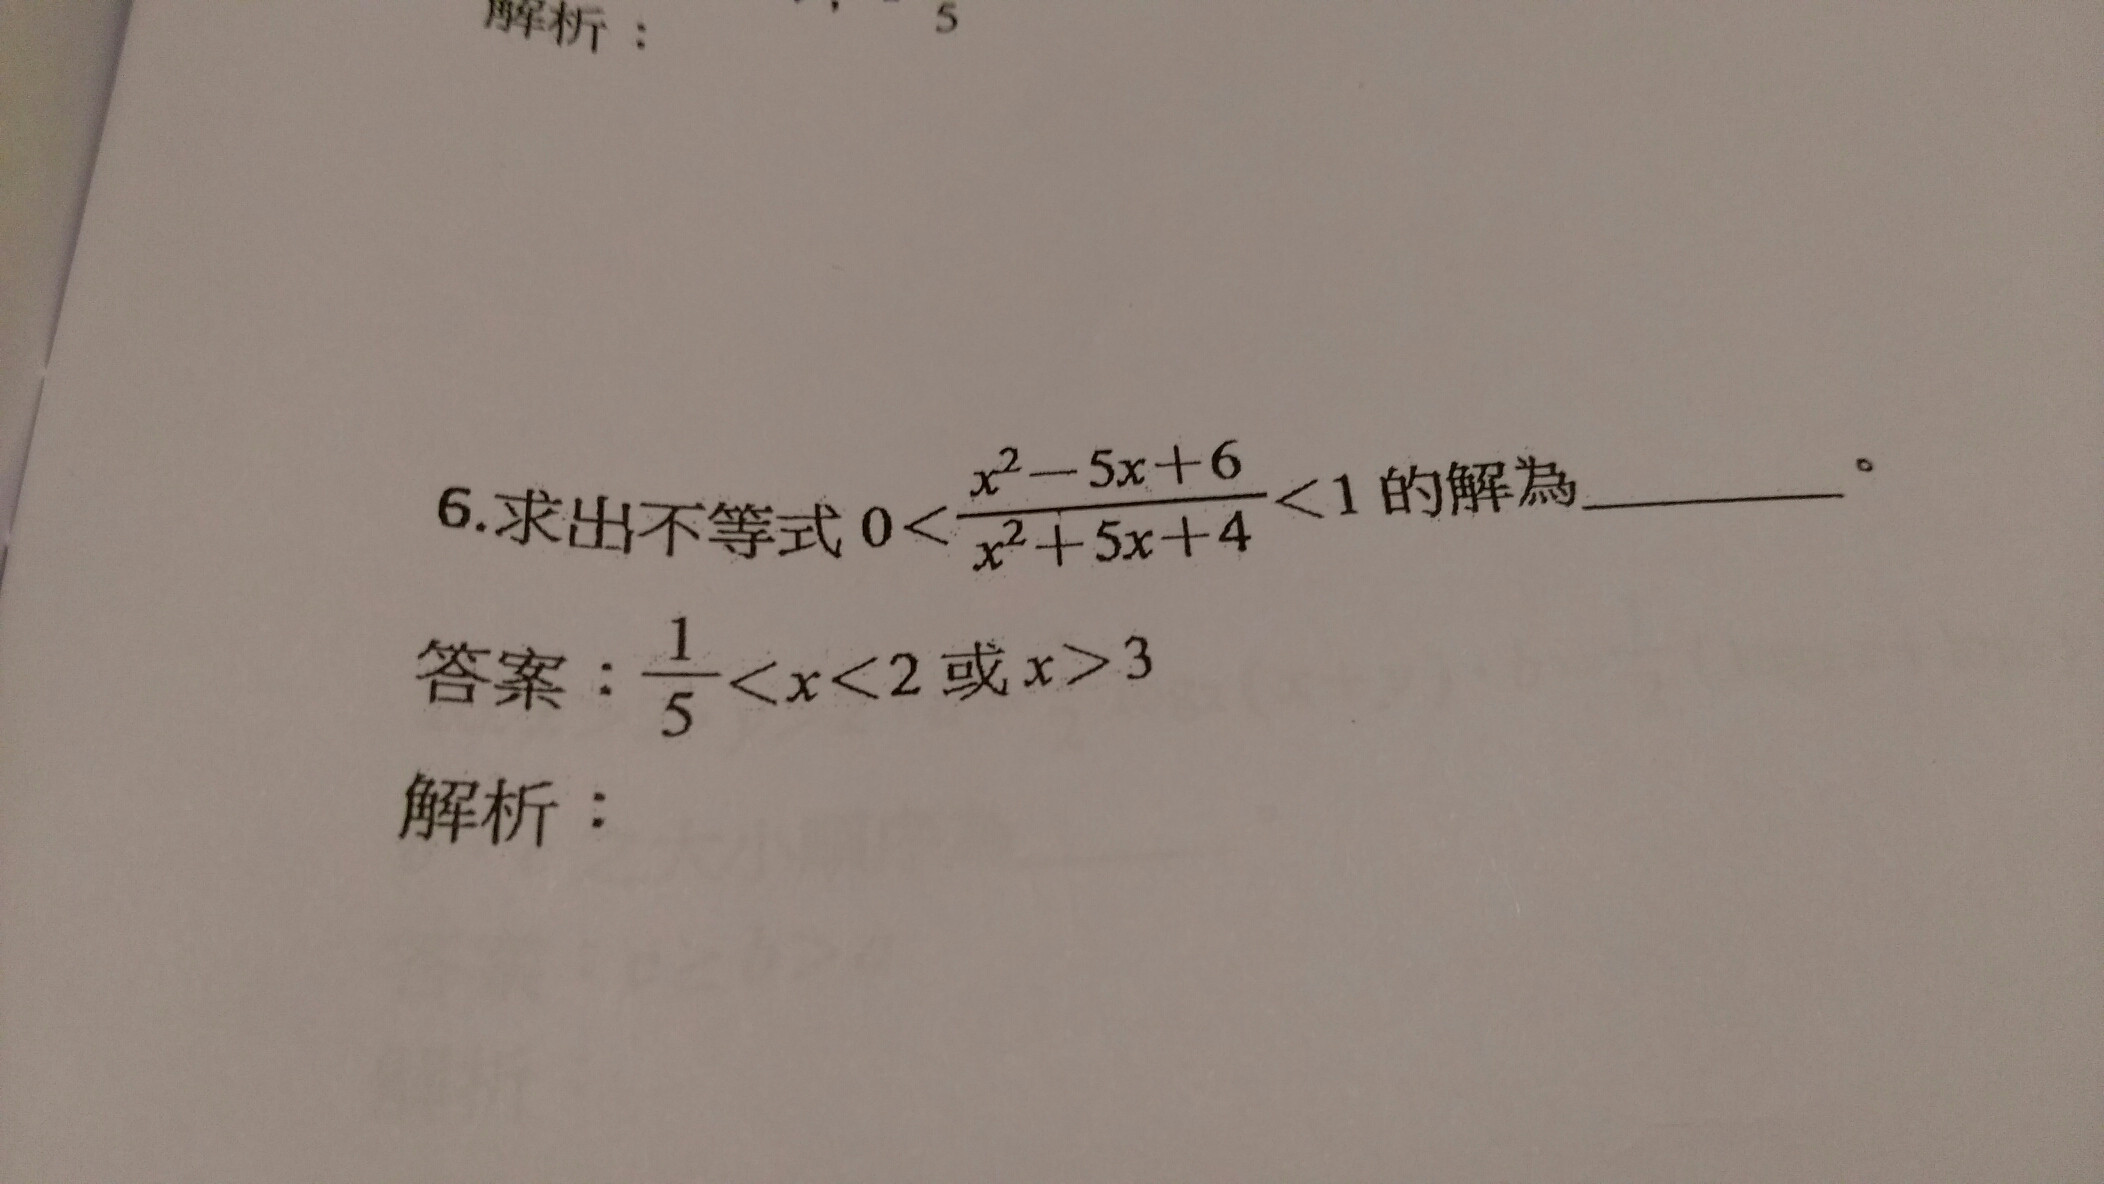 解析：
5
6.求出不等式 0<\frac{x²-5x+6}{x²+5x+4}<1 的解為________。
答案：\frac{1}{5}<x<2 或 x>3
解析：